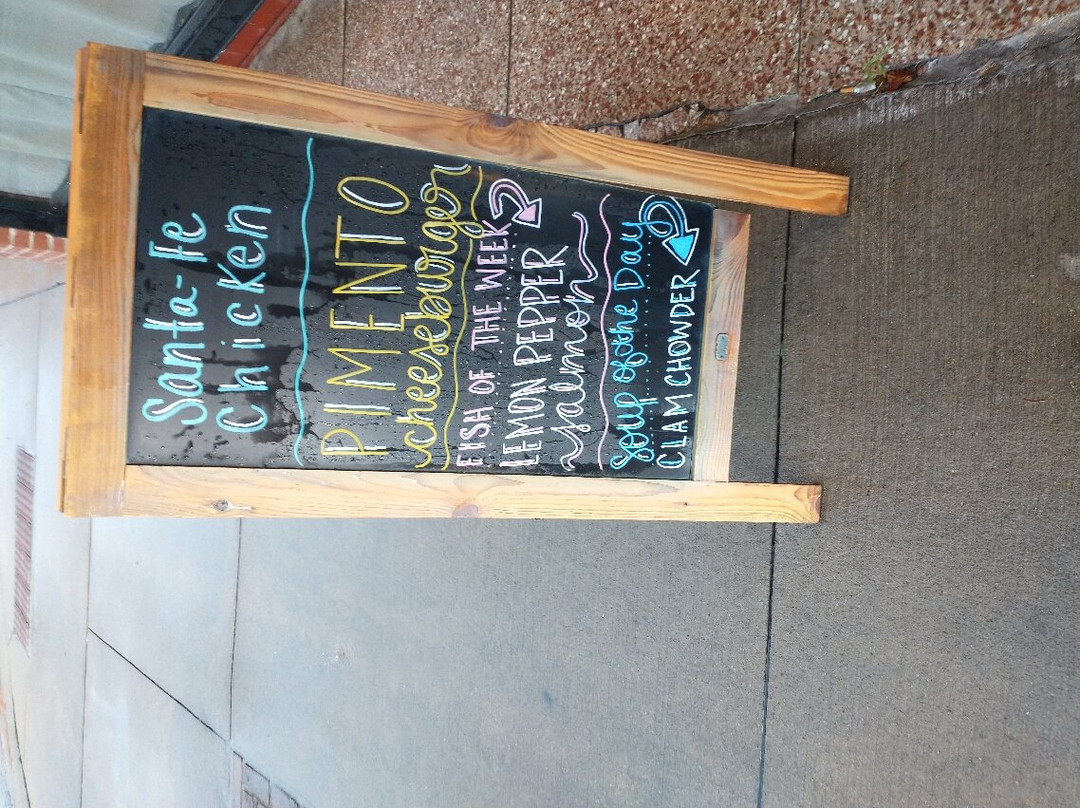 Santa-Fe
Chicken
PIMENTO
cheeseburger
FISH OF THE WEEK
LEMON PEPPER
salmon
Soup of the Day
CLAM CHOWDER